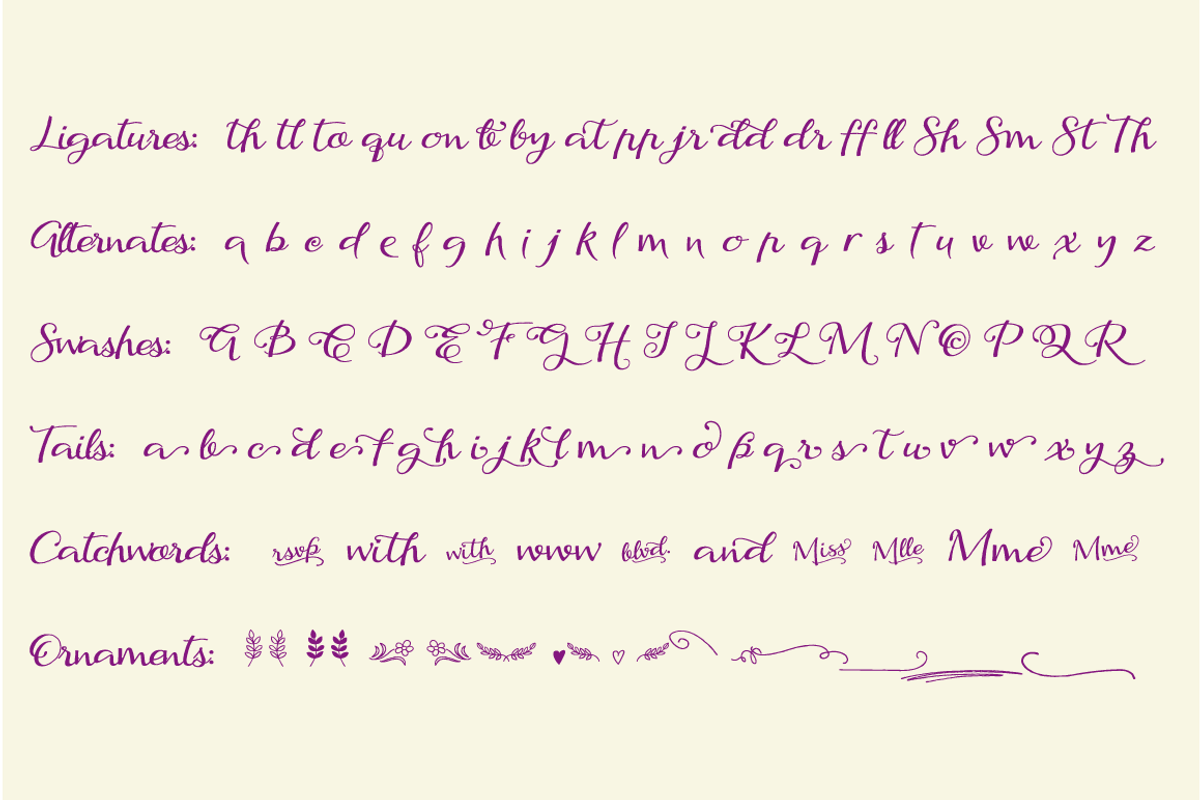 Ligatures: th tl to qu on to by at pp jr dd dr ff ll Sh Sm St Th
Alternates: a b c d e f g h i j k l m n o p q r s t u v w x y z
Swashes: A B C D E F G H I J K L M N O P Q R
Tails: a b c d e f g h i j k l m n o p q r s t u v w x y z
Catchwords: rsvp with with www blvd. and Miss Mlle Mme Mme
Ornaments: